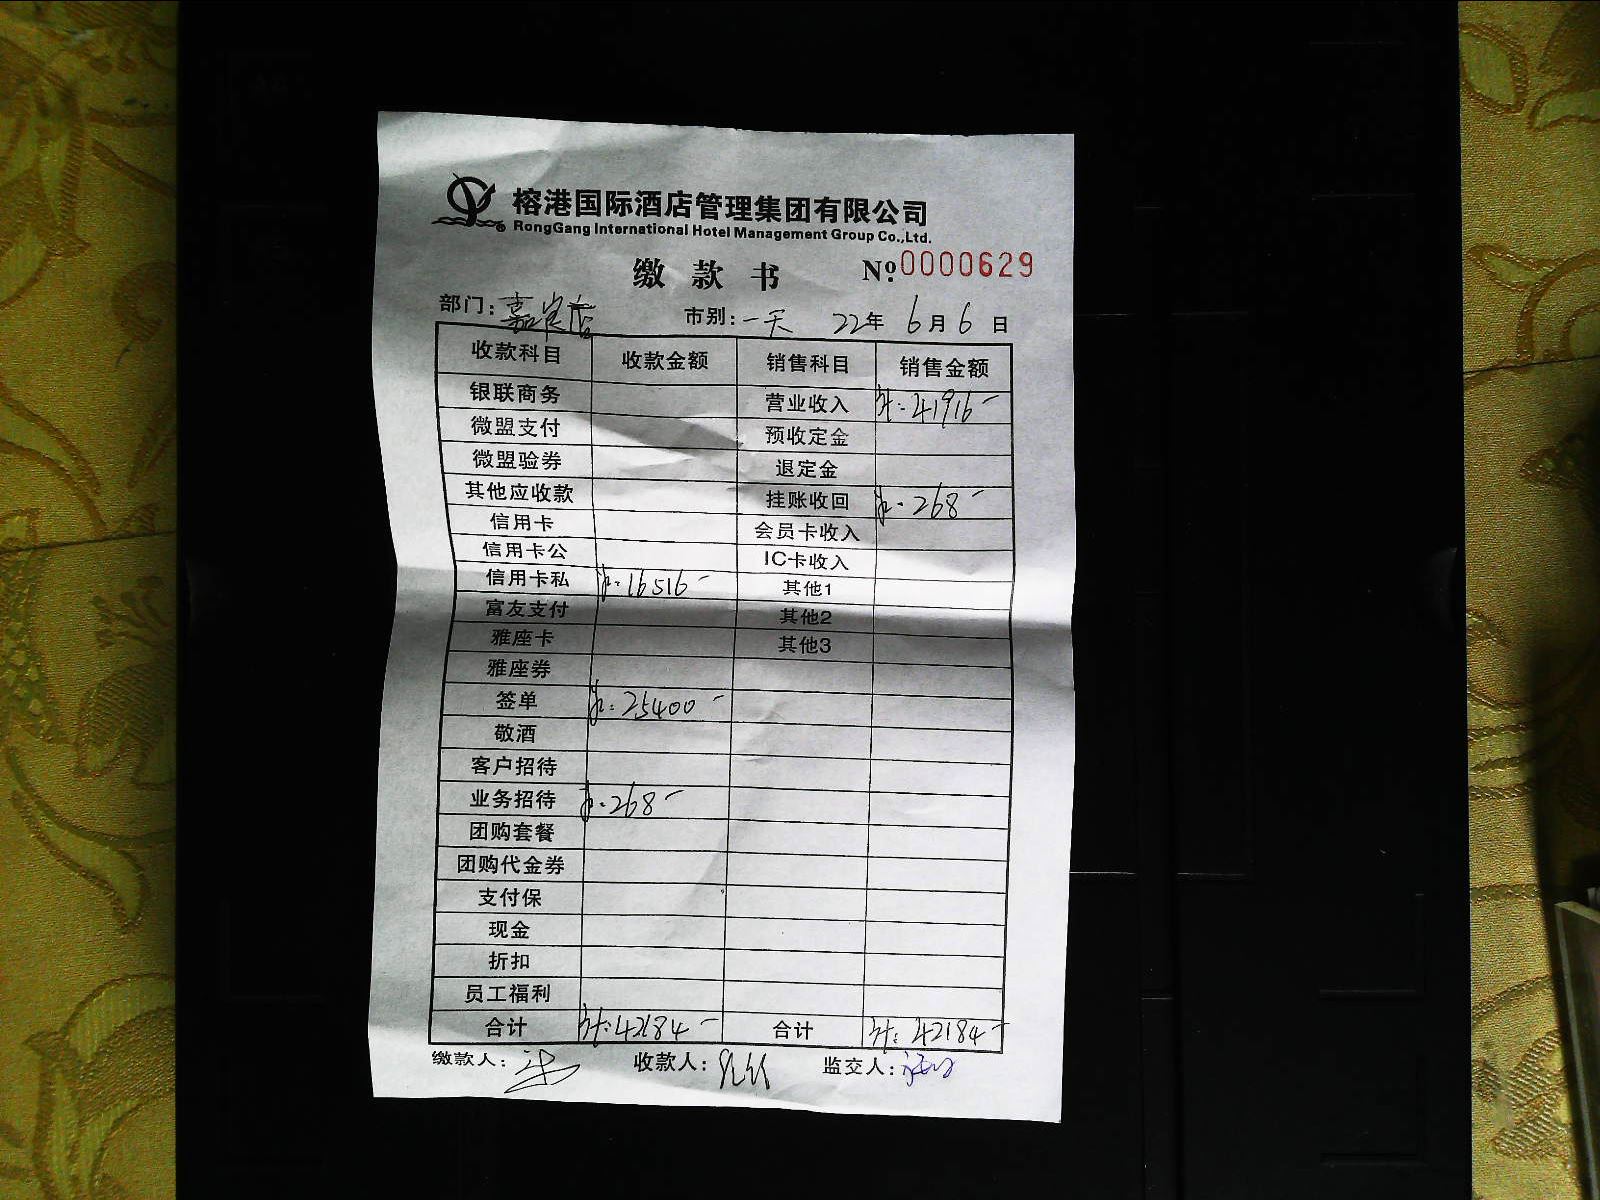 榕港国际酒店管理集团有限公司
RongGang International Hotel Management Group Co.,Ltd.
缴款书 №:0000629
部门:嘉宾店 市别:一天 22年6月6日
收款科目 收款金额 销售科目 销售金额
银联商务 营业收入 计:41916-
微盟支付 预收定金
微盟验券 退定金
其他应收款 挂账收回 计:268-
信用卡 会员卡收入
信用卡公 IC卡收入
信用卡私 计:16516- 其他1
富友支付 其他2
雅座卡 其他3
雅座券
签单 计:25400-
敬酒
客户招待
业务招待 计:268-
团购套餐
团购代金券
支付保
现金
折扣
员工福利
合计 计:42184- 合计 计:42184-
缴款人: 收款人: 监交人: